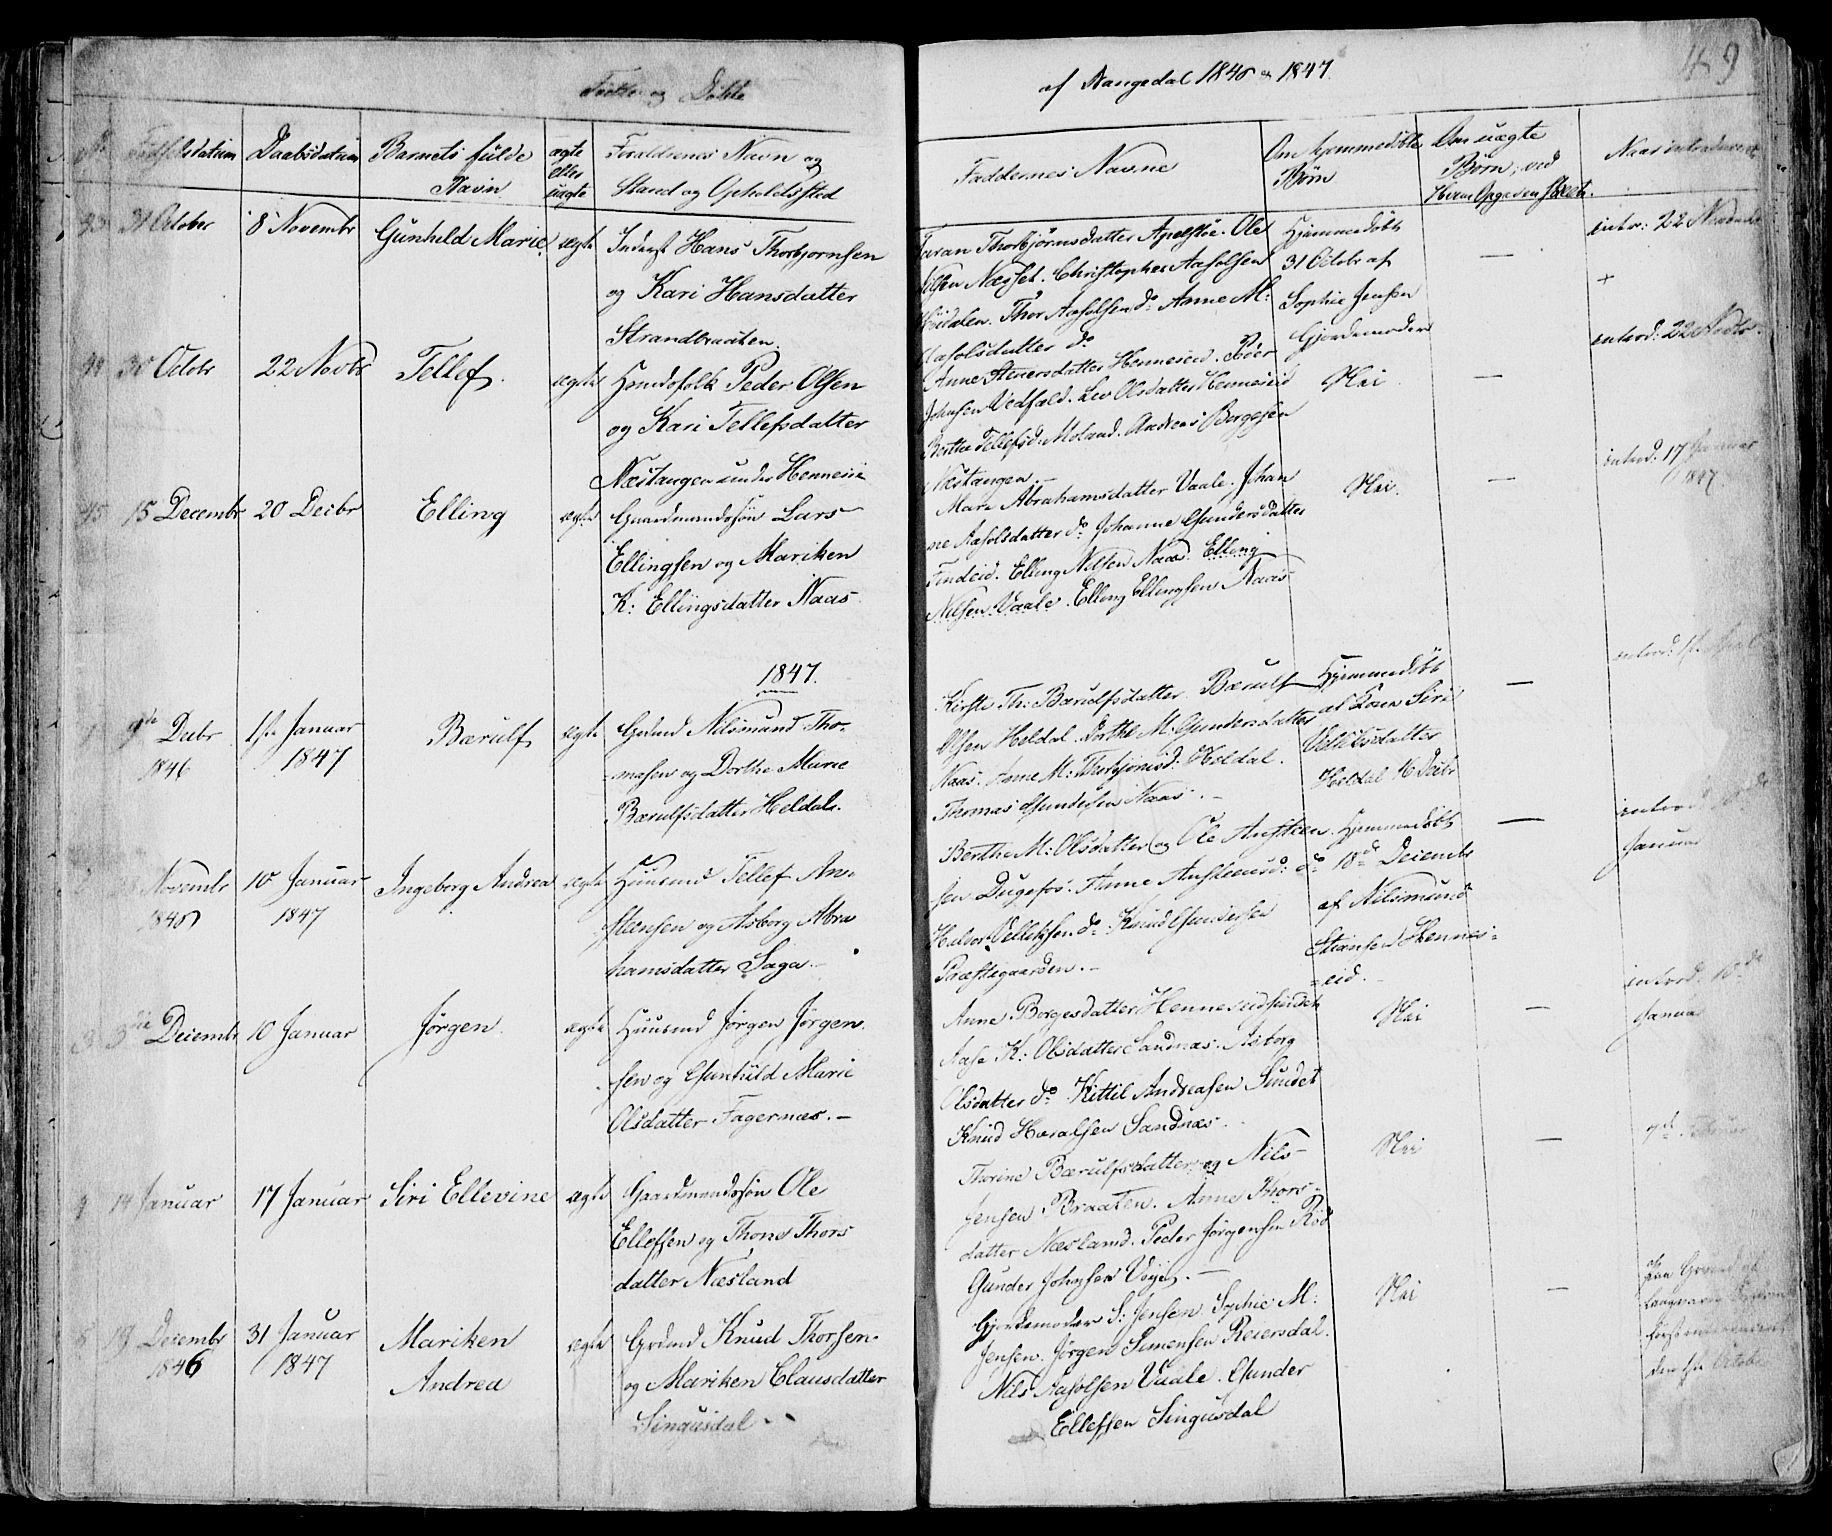 Fødte og Døbte
af Nangedal 1846 & 1847.
169
No Fødselsdatum Daabsdatum Barnets fulde Navn ægte eller uægte Forældrenes Navn og Stand og Opholdssted
Faddernes Navne Om hjemmedøbte Børn Om uægte Børn, ved Naar introduceret
43 31 October 8 Novembr Gunhild Marie ægte Inderst Hans Thorbjørnsen
og Kari Hansdatter
Strandbraaten.
Taran Thorbjørnsdatter Apelstøe. Ole
Olsen Næsset. Christopher Aasolsen
Thor Aasolsen do Anne M:
Aasolsdatter do
Hjemmedøbt
31 Octobr af
Sophie Jensen
Gjordemoder
—
intr: 22 Novembr
+
44 30 Octobr 22 Novbr Tellef. ægte Huusfolk Peder Olsen
og Kari Tellefsdatter
Næstangen under Henneseie
Anne Stenersdatter Henneseid.
Johnsen Vedfald. Liv Olsdatter Henneseid
Berthe Tellefsd: Moland. Andreas Børgesen
Næstangen.—
Nei
—
introd: 22 Novbr.
45 15 Decembr 20 Decbr Elling ægte Gaardmandssøn Lars
Ellingsen og Mariken
K: Ellingsdatter Naas
Maren Abrahamsdatter Vaale. Johan
ne Aasolsdatter do Johanne Gundersdatter
Findeid. Elling Nilsen Naas. Elling
Nilsen Vaale. Elling Ellingsen Naas
Nei.
—
introd: 17 Januar
1847.
1847.
1 9de Decbr 1ste Januar Bærulf ægte Grdmd Nilsmund Tho-
1846 1847 masen og Dorthe Marie
Bærulfsdatter Heldal.
Kirsti Th: Bærulfsdatter. Bærulf
Olsen Heldal. Dorthe M: Gundersdatter
Naas. Anne M: Thorbjørnsd: Heldal.
Thomas Gundersen Naas.—
Hjemmedøbt
af Konen Siri
Vetlesdatter
Heldal 16 Decbr
—
introd: 1ste
Novembr 10 Januar Ingeborg Andrea ægte Huusmd Tellef An-
1846 1847 stensen og Asborg Abra
hamsdatter Saga.—
Berthe M: Olsdatter og Ole Anstsen
sen Dugefos. Anne Anstensd: do
Halvor Vetlesen do Knud Gundersen
Præstegaarden.—
Hjemmedøbt
18de Decembr
af Nilsmund
Stiansen Hennes-
eid.
—
introd:
Januar
3 3die Decembr 10 Januar Jørgen ægte Huusmd Jørgen Jørgen
sen og Gunhild Marie
Olsdatter Fagernæs.—
Anne Børgesdatter Henneseidsundet
Aase K: Olsdatter Sandnæs. Asborg
Olsdatter do Kittil Andreasen Sundet
Knud Haralsen Sandnæs.
Nei
—
introd: 10de
Januar
4 14 Januar 17 Januar Siri Ellevine ægte Gaardmandssøn Ole
Ellefsen og Thone Thors
datter Næsland
Thorine Bærulfsdatter og Nils
Jensen Braaten. Anne Thors-
datter Næsland. Peder Jørgensen Rød
Gunder Johnsen —
Nei
—
7de
5 19 Decembr 31 Januar Mariken ægte Grdmd Knud Thorsen
1846 1847 Andrea og Mariken Clausdatter
Singusdal
Gjordemoder S: Jensen. Sophie M:
Jensen. Jørgen Simonsen Reiersdal.
Nils Aasolsen Vaale. Gunder
Ellefsen Singusdal
Nei
—
paa Grund af
langvarig
først
den 1ste Octob